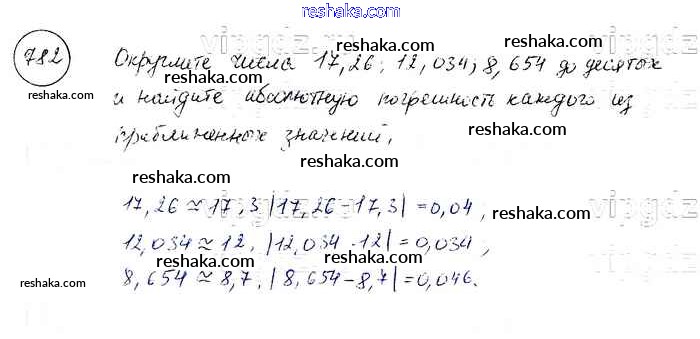 reshaka.com
782
Округлите числа 17,26; 12,034; 8,654 до десятых
reshaka.com
reshaka.com
и найдите абсолютную погрешность каждого из
reshaka.com
reshaka.com
приближенных значений.
vipgdz
reshaka.com
17,26 ≈ 17,3 |17,26-17,3| = 0,04,
reshaka.com
12,034 ≈ 12, |12,034 - 12| = 0,034,
reshaka.com
reshaka.com
8,654 ≈ 8,7, |8,654-8,7| = 0,046.
reshaka.com
reshaka.com